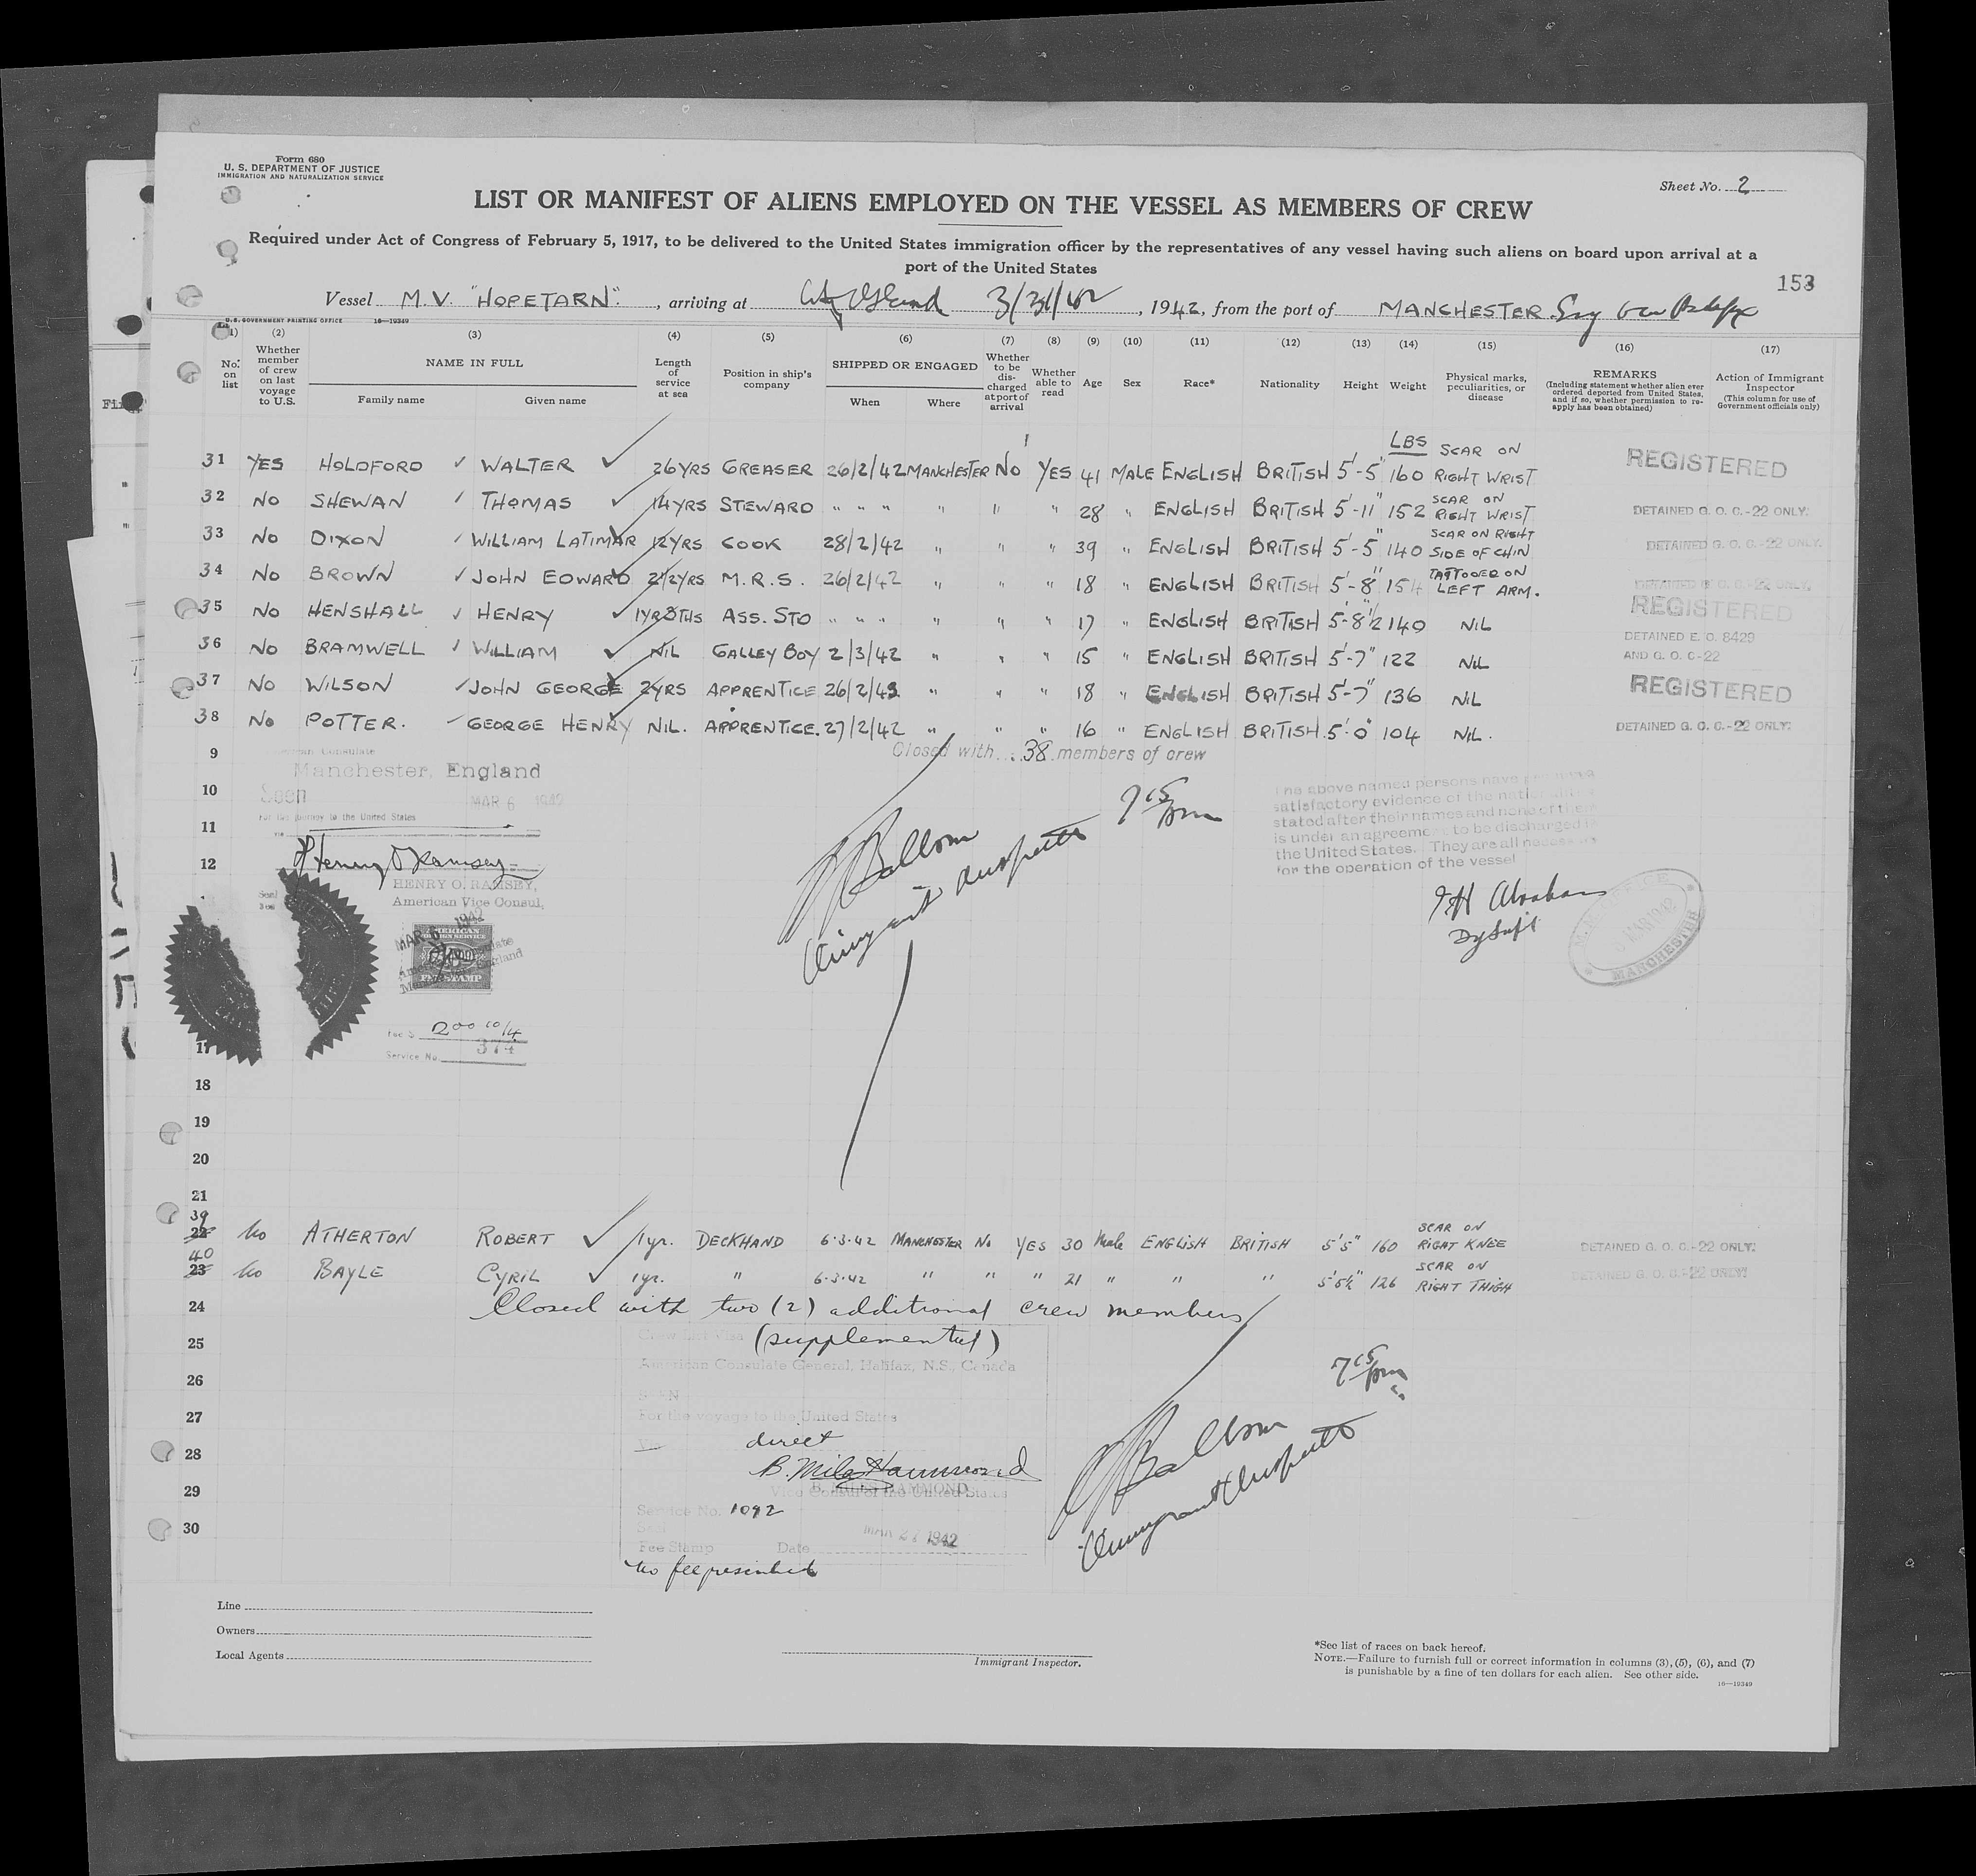 Form 680
U. S. DEPARTMENT OF JUSTICE
IMMIGRATION AND NATURALIZATION SERVICE
Sheet No. 2
LIST OR MANIFEST OF ALIENS EMPLOYED ON THE VESSEL AS MEMBERS OF CREW
Required under Act of Congress of February 5, 1917, to be delivered to the United States immigration officer by the representatives of any vessel having such aliens on board upon arrival at a
port of the United States
153
Vessel M.V. "HOPETARN". , arriving at 3/31/42 , 1942, from the port of MANCHESTER Eng
U.S. GOVERNMENT PRINTING OFFICE 16—19349
(1) (2) (3) (4) (5) (6) (7) (8) (9) (10) (11) (12) (13) (14) (15) (16) (17)
No. on list Whether member of crew on last voyage to U.S. NAME IN FULL Family name Given name Length of service at sea Position in ship's company SHIPPED OR ENGAGED When Where Whether to be discharged at port of arrival Whether able to read Age Sex Race* Nationality Height Weight Physical marks, peculiarities, or disease REMARKS (Including statement whether alien ever ordered deported from United States, and if so, whether permission to reapply has been obtained) Action of Immigrant Inspector (This column for use of Government officials only)
LBS
31 YES HOLDFORD ✓ WALTER ✓ 26YRS GREASER 26/2/42 MANCHESTER NO YES 41 MALE ENGLISH BRITISH 5'-5" 160 SCAR ON RIGHT WRIST REGISTERED
32 NO SHEWAN ✓ THOMAS ✓ 14YRS STEWARD " " " " " " 28 " ENGLISH BRITISH 5'-11" 152 SCAR ON RIGHT WRIST DETAINED G. O. C.-22 ONLY.
33 NO DIXON ✓ WILLIAM LATIMAR 12YRS COOK 28/2/42 " " " 39 " ENGLISH BRITISH 5'-5" 140 SCAR ON RIGHT SIDE OF CHIN DETAINED G. O. C.-22 ONLY.
34 NO BROWN ✓ JOHN EDWARD 2½YRS M.R.S. 26/2/42 " " " 18 " ENGLISH BRITISH 5'-8" 154 TATTOOED ON LEFT ARM. DETAINED G. O. C.-22 ONLY.
35 NO HENSHALL ✓ HENRY ✓ ASS. STO " " " " " " 17 " ENGLISH BRITISH 5'-8½ 140 NIL REGISTERED
36 NO BRAMWELL ✓ WILLIAM ✓ NIL GALLEY BOY 2/3/42 " " " 15 " ENGLISH BRITISH 5'-7" 122 NIL DETAINED E. O. 8429 AND G. O. C-22
37 NO WILSON ✓ JOHN GEORGE 2YRS APPRENTICE 26/2/42 " " " 18 " ENGLISH BRITISH 5'-7" 136 NIL REGISTERED
38 NO POTTER. ✓ GEORGE HENRY NIL. APPRENTICE. 27/2/42 " " " 16 " ENGLISH BRITISH. 5'-0" 104 NIL. DETAINED G. O. C.-22 ONLY.
9 American Consulate Closed with 38 members of crew
Manchester, England
10 Seen MAR 6 1942 7 15 pm
For the journey to the United States
The above named persons have produced
satisfactory evidence of the
stated after their names and none of them
is under an agreement to be discharged in
the United States. They are all necessary
for the operation of the vessel
11
12 Henry O Ramsey
HENRY O. RAMSEY,
American Vice Consul.
Abraham
MANCHESTER
AMERICAN FOREIGN SERVICE
FEE STAMP
Fee $ 2 00 10/4
Service No. 374
17
18
19
20
21
39 22 No ATHERTON ROBERT ✓ 1yr. DECKHAND 6.3.42 MANCHESTER No YES 30 Male ENGLISH BRITISH 5'5" 160 SCAR ON RIGHT KNEE DETAINED G. O. C.-22 ONLY.
40 23 No BAYLE CYRIL ✓ 1yr. " 6.3.42 " " " 21 " " " 5'5½" 126 SCAR ON RIGHT THIGH DETAINED G. O. C.-22 ONLY.
24 Closed with two (2) additional crew members
25 Crew List Visa (supplemental)
American Consulate General, Halifax, N.S., Canada
26 SEEN 7 15 pm
27 For the voyage to the United States
direct
28 B. Miles Hammond
B. MILES HAMMOND
29 Vice Consul of the United States
Service No. 1092
30 Seal
Fee Stamp Date MAR 27 1942
No fee prescribed
Line
Owners
Local Agents
Immigrant Inspector.
*See list of races on back hereof.
NOTE.—Failure to furnish full or correct information in columns (3), (5), (6), and (7)
is punishable by a fine of ten dollars for each alien. See other side.
16—19349